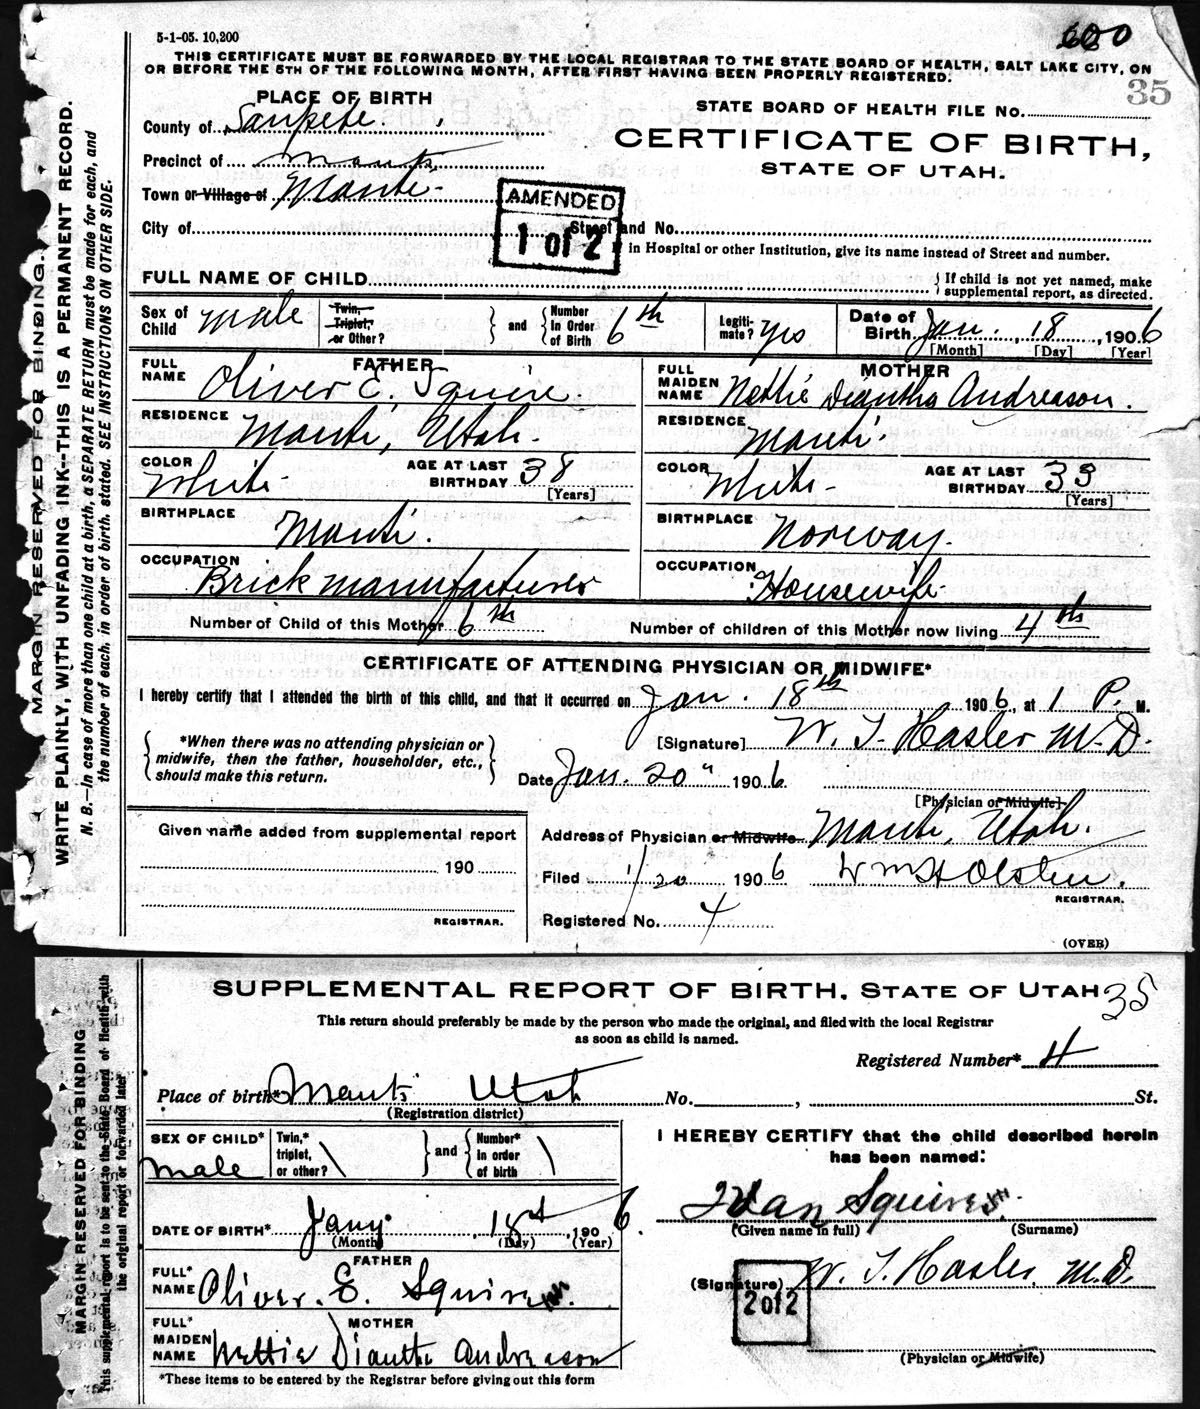 5-1-05. 10,200
600
THIS CERTIFICATE MUST BE FORWARDED BY THE LOCAL REGISTRAR TO THE STATE BOARD OF HEALTH, SALT LAKE CITY, ON
OR BEFORE THE 5TH OF THE FOLLOWING MONTH, AFTER FIRST HAVING BEEN PROPERLY REGISTERED.
35
MARGIN RESERVED FOR BINDING.
WRITE PLAINLY, WITH UNFADING INK—THIS IS A PERMANENT RECORD.
N. B.—In case of more than one child at a birth, a SEPARATE RETURN must be made for each, and
the number of each, in order of birth, stated. SEE INSTRUCTIONS ON OTHER SIDE.
PLACE OF BIRTH
County of Sanpete.
Precinct of Manti
Town or Village of Manti
City of
STATE BOARD OF HEALTH FILE NO.
CERTIFICATE OF BIRTH,
STATE OF UTAH.
AMENDED
1 of 2
Street and No.
in Hospital or other Institution, give its name instead of Street and number.
FULL NAME OF CHILD
If child is not yet named, make
supplemental report, as directed.
Sex of Child male
Twin, Triplet, or Other?
and
Number In Order of Birth 6th
Legiti-mate? yes
Date of Birth Jan. 18, 1906
[Month] [Day] [Year]
FATHER
FULL NAME Oliver E. Squire.
RESIDENCE Manti, Utah.
COLOR White
AGE AT LAST BIRTHDAY 38
[Years]
BIRTHPLACE Manti.
OCCUPATION Brick manufacturer
MOTHER
FULL MAIDEN NAME Nettie Diantha Andreason.
RESIDENCE Manti.
COLOR White
AGE AT LAST BIRTHDAY 33
[Years]
BIRTHPLACE Norway.
OCCUPATION Housewife
Number of Child of this Mother 6th
Number of children of this Mother now living 4th
CERTIFICATE OF ATTENDING PHYSICIAN OR MIDWIFE*
I hereby certify that I attended the birth of this child, and that it occurred on Jan. 18th 1906, at 1 P. M.
*When there was no attending physician or
midwife, then the father, householder, etc.,
should make this return.
[Signature] W. T. Hasler M.D.
Date Jan. 20" 1906
[Physician or Midwife]
Given name added from supplemental report
190
REGISTRAR.
Address of Physician or Midwife Manti, Utah.
Filed 1/20 1906 Wm H Olsten.
REGISTRAR.
Registered No. 4
(OVER)
MARGIN RESERVED FOR BINDING
This supplemental report is to be sent to the State Board of Health with
the original report or forwarded later
SUPPLEMENTAL REPORT OF BIRTH, STATE OF UTAH
35
This return should preferably be made by the person who made the original, and filed with the local Registrar
as soon as child is named.
Registered Number* 4
Place of birth* Manti Utah No. , St.
(Registration district)
SEX OF CHILD* male
Twin,* triplet, or other?
and
Number* In order of birth
DATE OF BIRTH* Jany. 18th, 1906
(Month) (Day) (Year)
FATHER
FULL* NAME Oliver. E. Squire
MOTHER
FULL* MAIDEN NAME Nettie Diantha Andreason
*These items to be entered by the Registrar before giving out this form
I HEREBY CERTIFY that the child described herein
has been named:
Ivan Squire
(Given name in full) (Surname)
(Signature) W. T. Hasler M.D.
2 of 2
(Physician or Midwife)